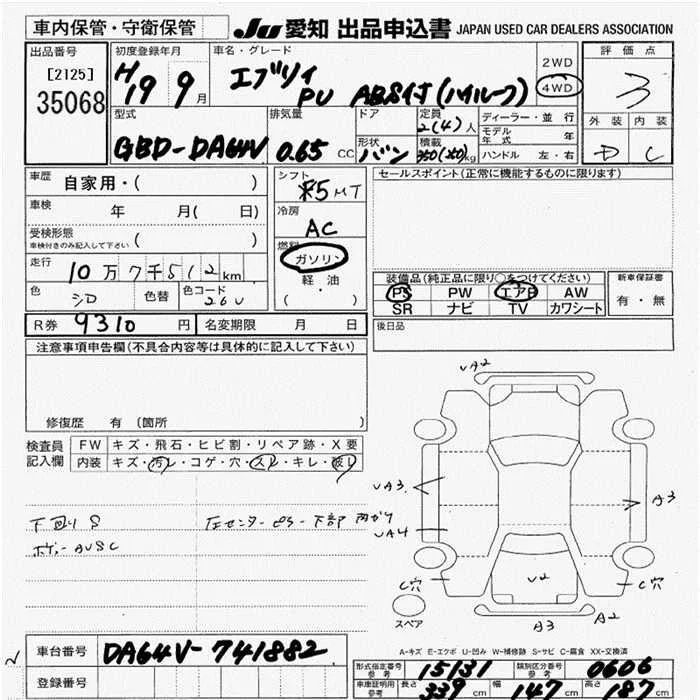 車内保管・守衛保管 Ju 愛知 出品申込書 JAPAN USED CAR DEALERS ASSOCIATION
出品番号 初度登録年月 車名・グレード 2WD 評価点
[2125] H19 9月 エブリイ 4WD 3
35068 PU ABS付(ハイルーフ)
型式 排気量 ドア 定員 ディーラー・並行 外装 内装
2(4)人 モデル年式 年
GBD-DA64V 0.65 CC 形状 バン 積載 350(250)kg ハンドル 左・右 D C
車歴 自家用・( ) シフト セールスポイント(正常に機能するものに限ります)
5MT
車検 年 月( 日) 冷房
AC
受検形態
車検付きのみ記入して下さい ( ) 燃料
ガソリン
走行 10万7千512km 軽油 装備品(純正品に限り○をつけてください) 新車保証書
( ) PS PW エアB AW 有・無
色 シロ 色替 色コード 26U SR ナビ TV カワシート
R券 9310円 名変期限 月 日 後日品
注意事項申告欄(不具合内容等は具体的に記入して下さい)
修復歴 有 〔箇所 〕
検査員記入欄 FW キズ・飛石・ヒビ割・リペア跡・X要
内装 キズ・汚レ・コゲ・穴・スレ・キレ・破レ
下回りS
ボデーAUSC
UA2
UA3
A3
UA4
U2
C穴
C穴
スペア
A3
A2
A-キズ E-エクボ U-凹み W-補修跡 S-サビ C-腐食 XX-交換済
車台番号 DA64V-741882
型式指定番号 参考 15131 類別区分番号 参考 0606
登録番号 車庫証明用 参考 長さ 339cm 幅 147cm 高さ 187cm